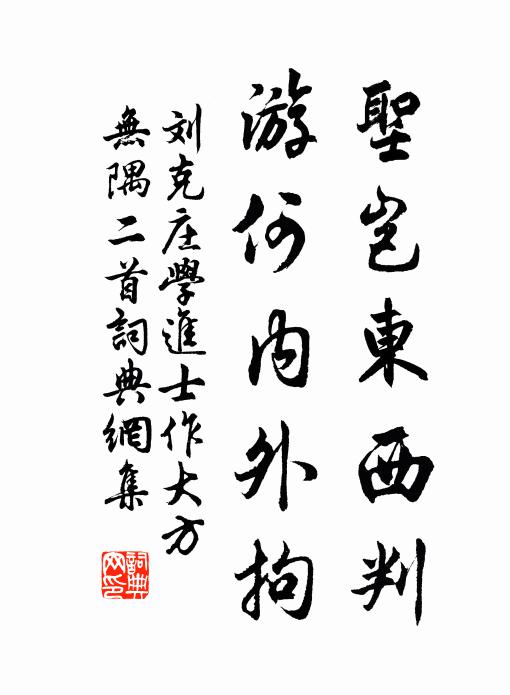 聖豈東西判
游何内外拘
刘克庄學進士作大方
無隅二首詞典網集
詞典
网印